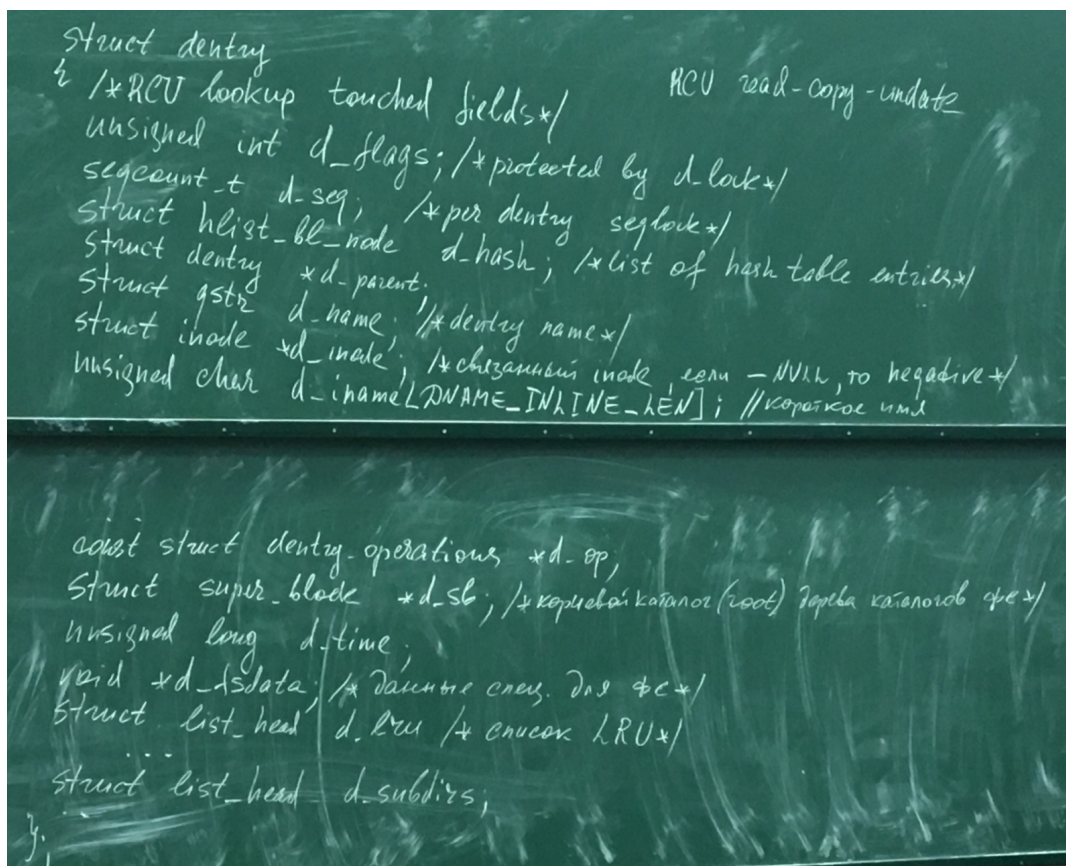 struct dentry
{ /*RCU lookup touched fields*/
RCU read-copy-undate
unsigned int d_flags; /*protected by d_lock*/
seqcount_t d_seq; /*per dentry seqlock*/
struct hlist_bl_node d_hash; /*list of hash table entries*/
struct dentry *d_parent;
struct qstr d_name; /*dentry name*/
struct inode *d_inode; /*связанный inode, если -NULL, то negative*/
unsigned char d_iname[DNAME_INLINE_LEN]; //короткое имя
const struct dentry_operations *d_op;
struct super_block *d_sb; /*корневой каталог (root) дерева каталогов фс*/
unsigned long d_time;
void *d_fsdata; /* данные спец. для фс*/
struct list_head d_lru /* список LRU*/
....
struct list_head d_subdirs;
};